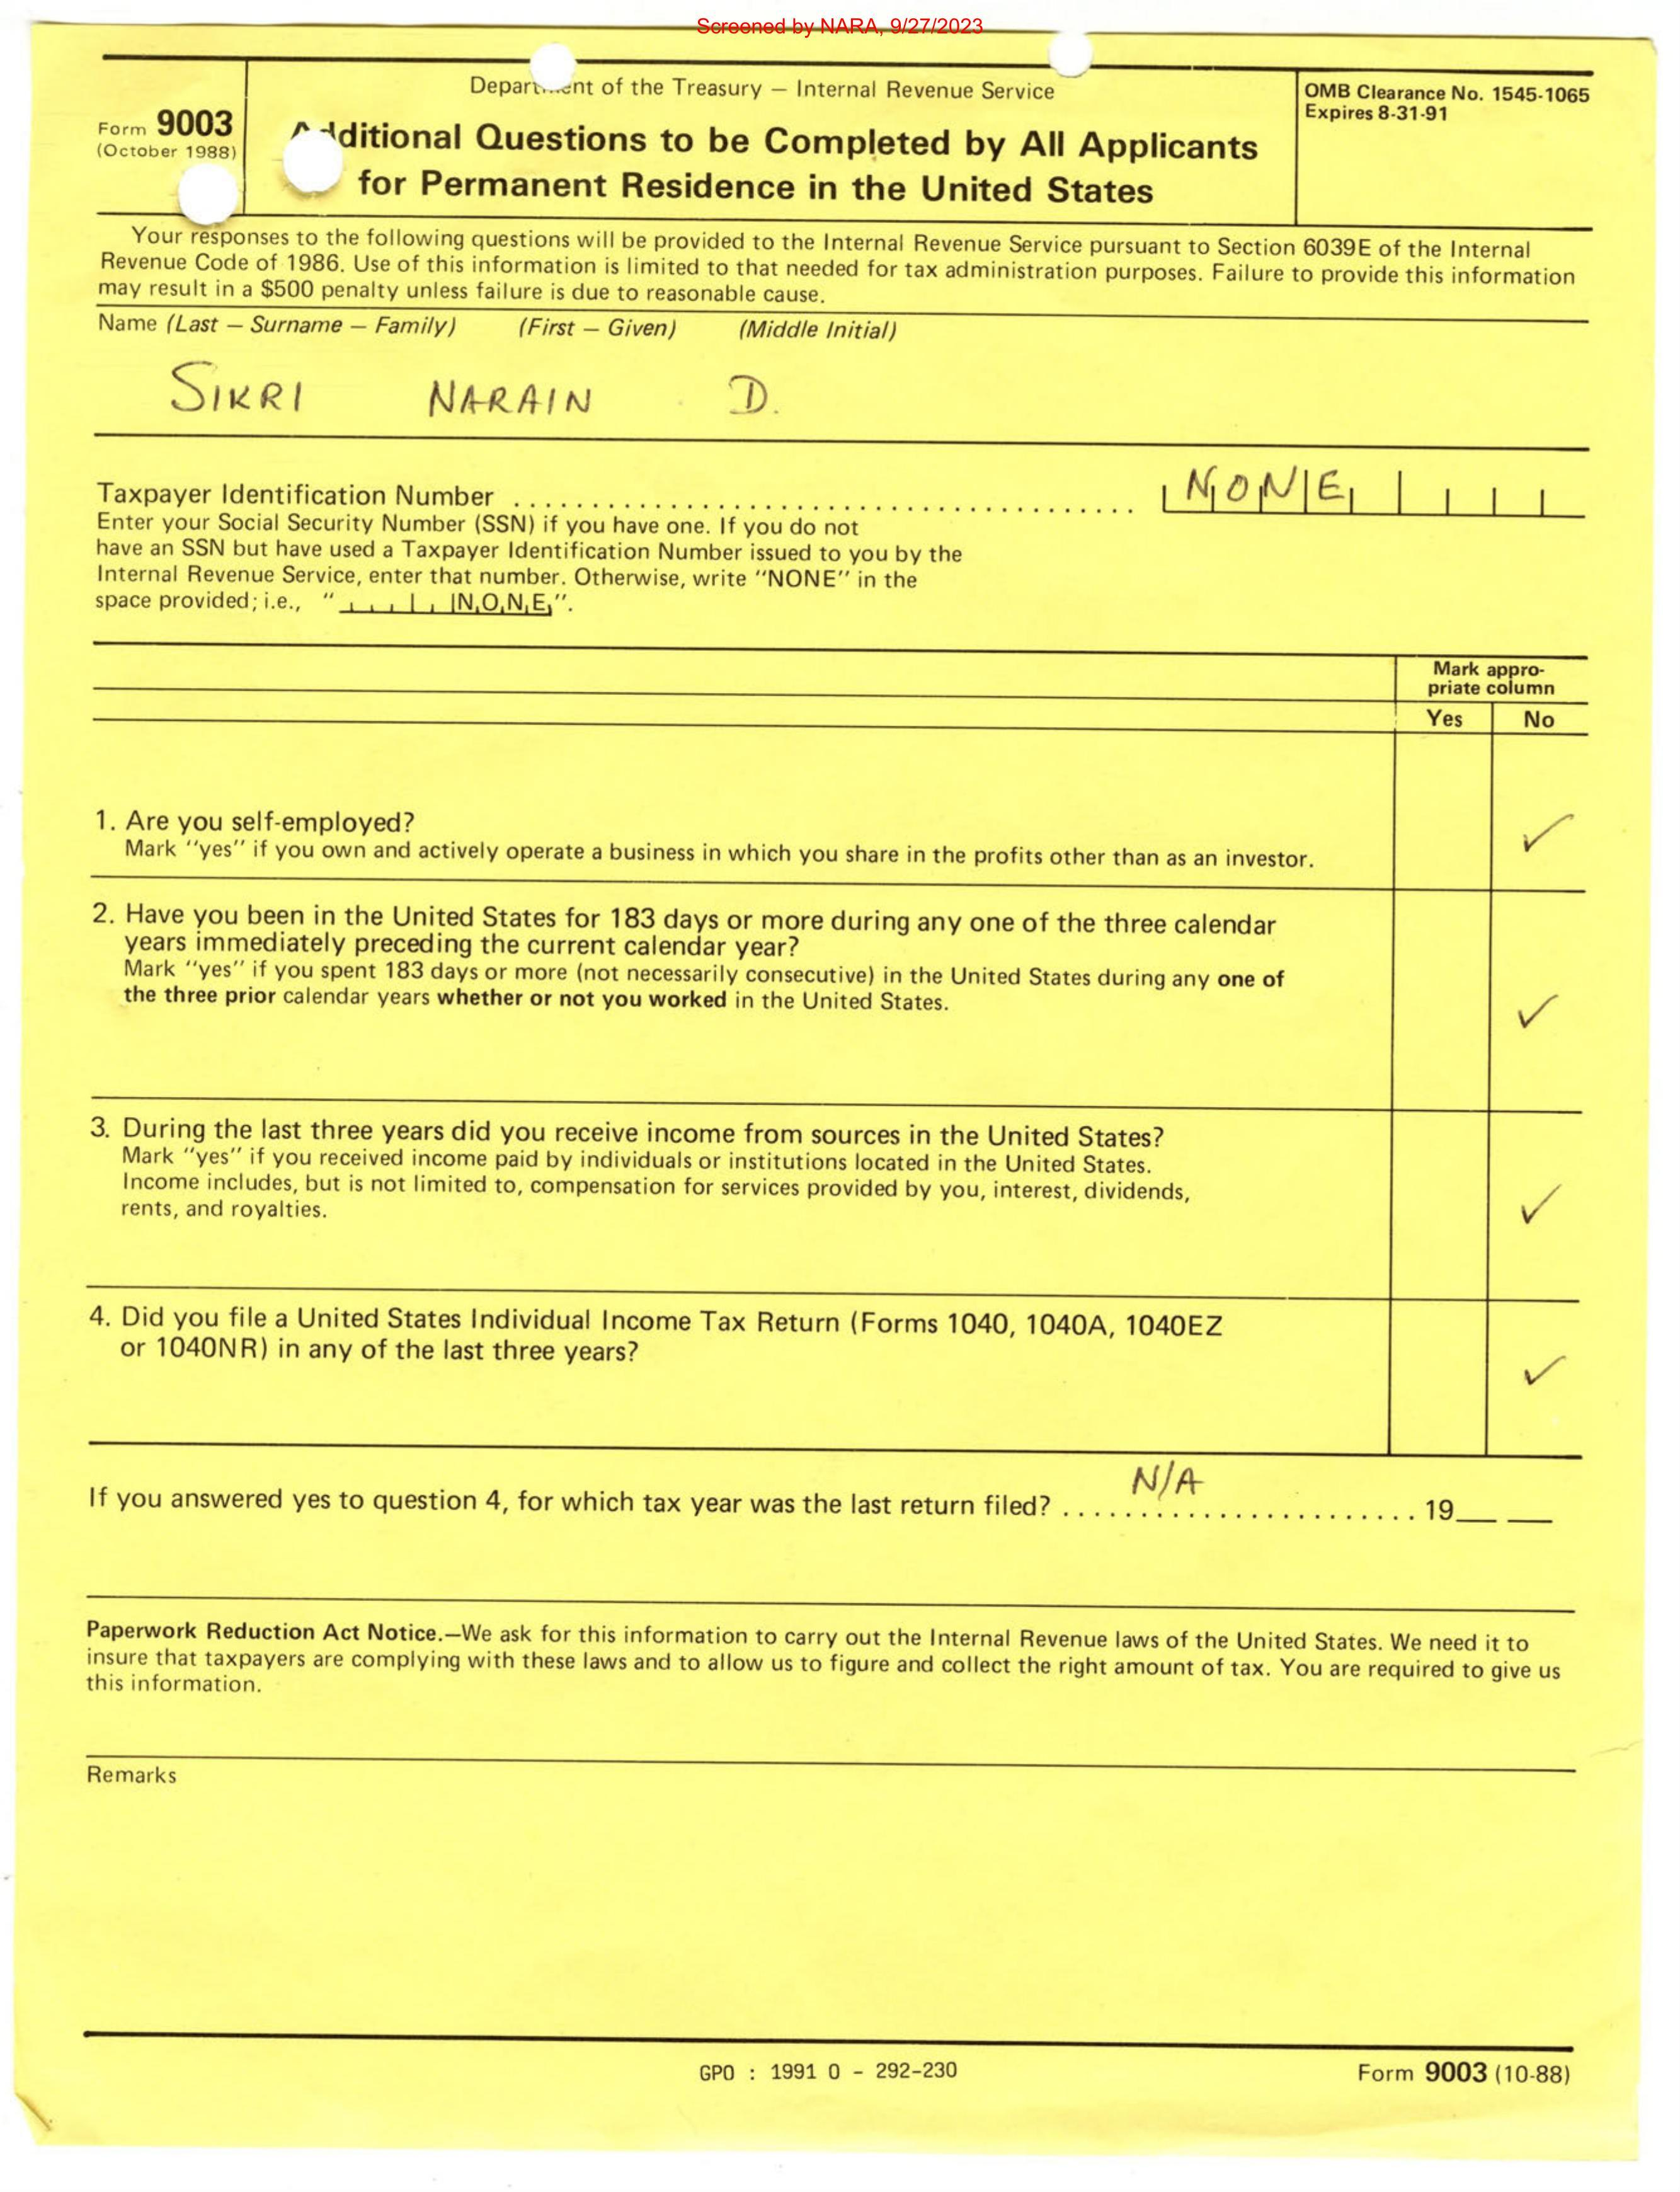 Screened by NARA, 9/27/2023
Department of the Treasury — Internal Revenue Service
OMB Clearance No. 1545-1065
Expires 8-31-91
Form 9003
(October 1988)
Additional Questions to be Completed by All Applicants
for Permanent Residence in the United States
Your responses to the following questions will be provided to the Internal Revenue Service pursuant to Section 6039E of the Internal
Revenue Code of 1986. Use of this information is limited to that needed for tax administration purposes. Failure to provide this information
may result in a $500 penalty unless failure is due to reasonable cause.
Name (Last — Surname — Family) (First — Given) (Middle Initial)
SIKRI NARAIN D.
Taxpayer Identification Number ........................................ NONE
Enter your Social Security Number (SSN) if you have one. If you do not
have an SSN but have used a Taxpayer Identification Number issued to you by the
Internal Revenue Service, enter that number. Otherwise, write "NONE" in the
space provided; i.e., "NONE".
Mark appro-
priate column
Yes No
1. Are you self-employed?
Mark "yes" if you own and actively operate a business in which you share in the profits other than as an investor. ✓
2. Have you been in the United States for 183 days or more during any one of the three calendar
years immediately preceding the current calendar year?
Mark "yes" if you spent 183 days or more (not necessarily consecutive) in the United States during any one of
the three prior calendar years whether or not you worked in the United States. ✓
3. During the last three years did you receive income from sources in the United States?
Mark "yes" if you received income paid by individuals or institutions located in the United States.
Income includes, but is not limited to, compensation for services provided by you, interest, dividends,
rents, and royalties. ✓
4. Did you file a United States Individual Income Tax Return (Forms 1040, 1040A, 1040EZ
or 1040NR) in any of the last three years? ✓
N/A
If you answered yes to question 4, for which tax year was the last return filed? ....................... 19__ __
Paperwork Reduction Act Notice.—We ask for this information to carry out the Internal Revenue laws of the United States. We need it to
insure that taxpayers are complying with these laws and to allow us to figure and collect the right amount of tax. You are required to give us
this information.
Remarks
GPO : 1991 0 - 292-230
Form 9003 (10-88)